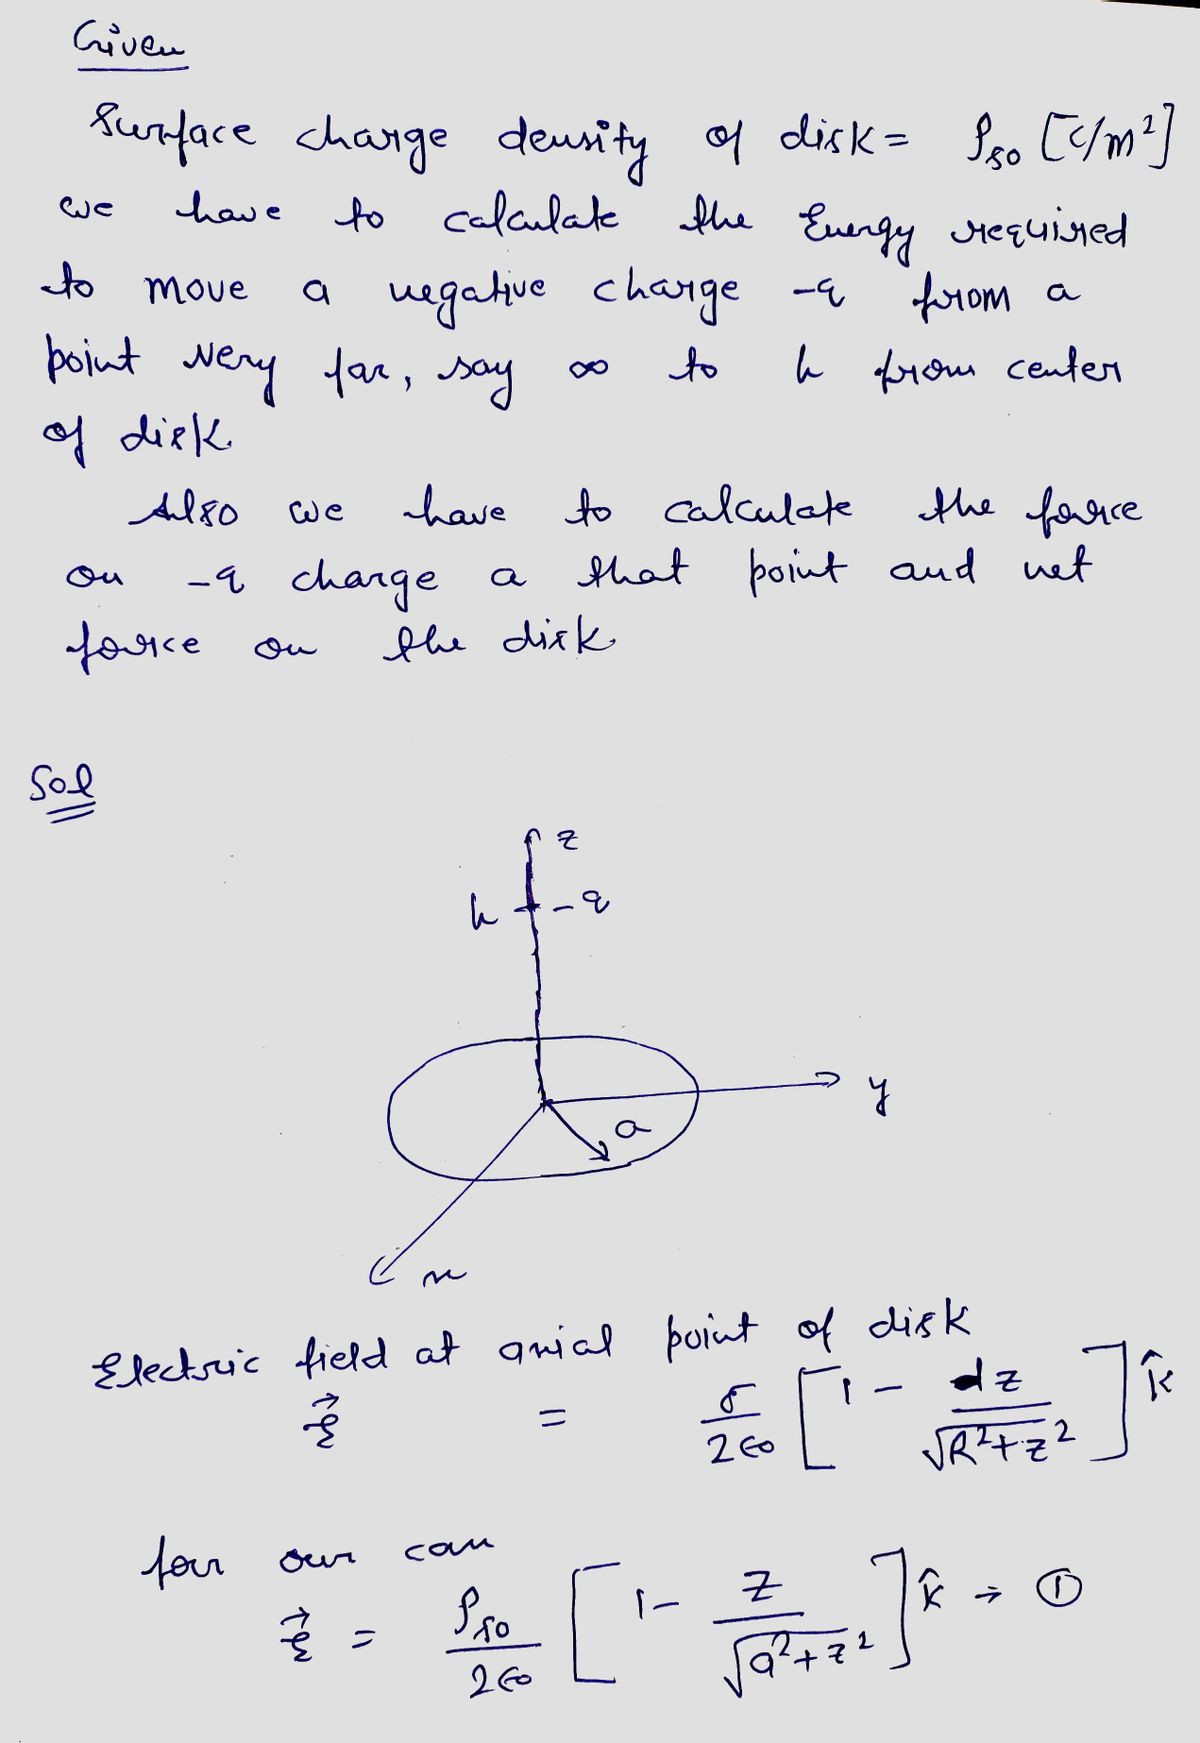 Given
Surface charge density of disk = ρso [C/m²]
we have to calculate the Energy required
to move a negative charge -q from a
point very far, say ∞ to h from center
of disk.
Also we have to calculate the force
on -q charge a that point and net
force on the disk
Sol
z
h -q
y
a
x
Electric field at axial point of disk
ξ⃗ = σ/2ϵ0 [1 - z/√R²+z²] k̂
for our case
ξ⃗ = ρso/2ϵ0 [1- z/√a²+z²] k̂ → ①